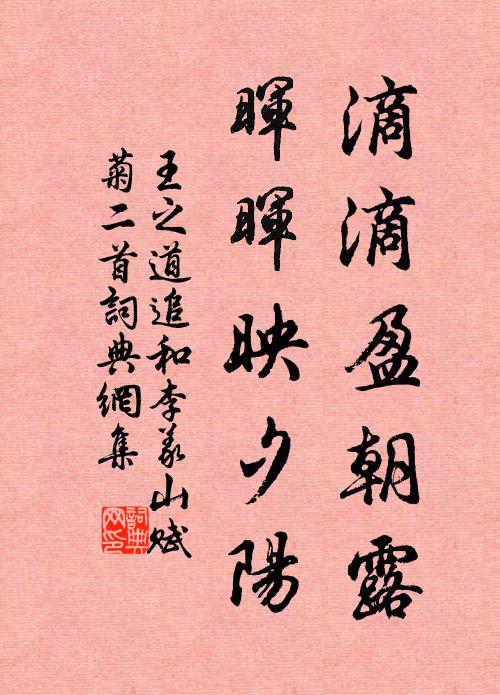 滴滴盈朝露
暉暉映夕陽
王之道追和李義山賦
菊二首詞典網集
詞典
网印